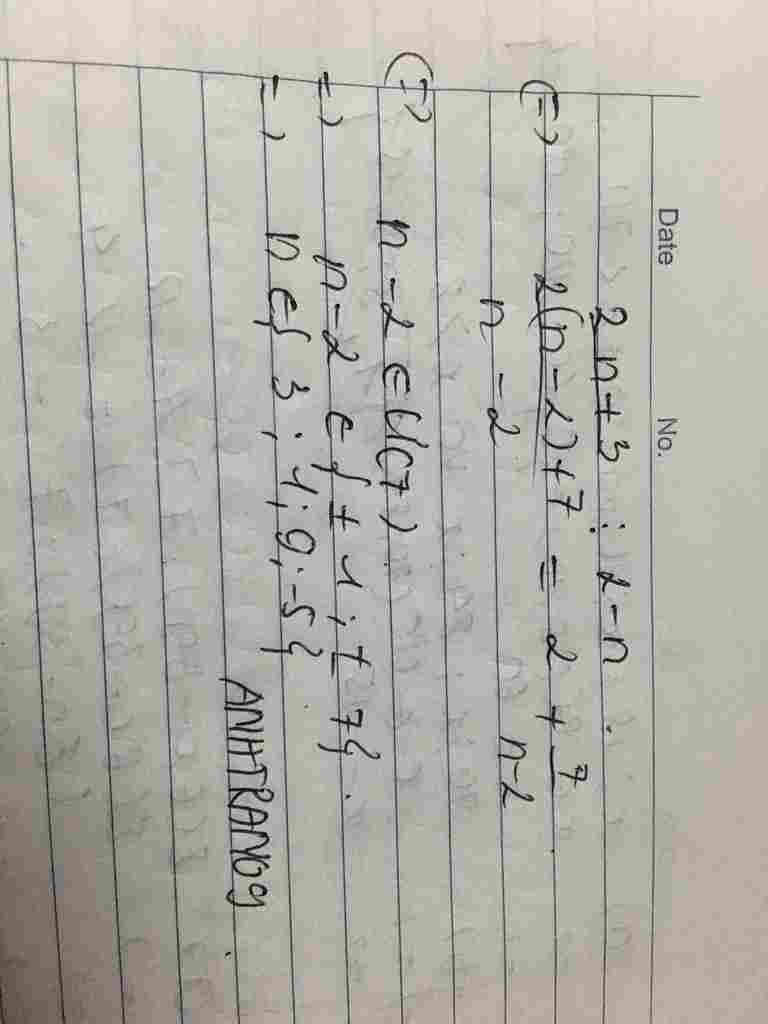 Date No.
2n+3 ⋮ 2-n.
(=) 2(n-2)+7 = 2 + 7
n-2 n-2
(=) n-2 ∈ Ư(7)
=) n-2 ∈ { ± 1; ± 7}.
=) n ∈ { 3; 1; 9; -5}
ANHTRAN09